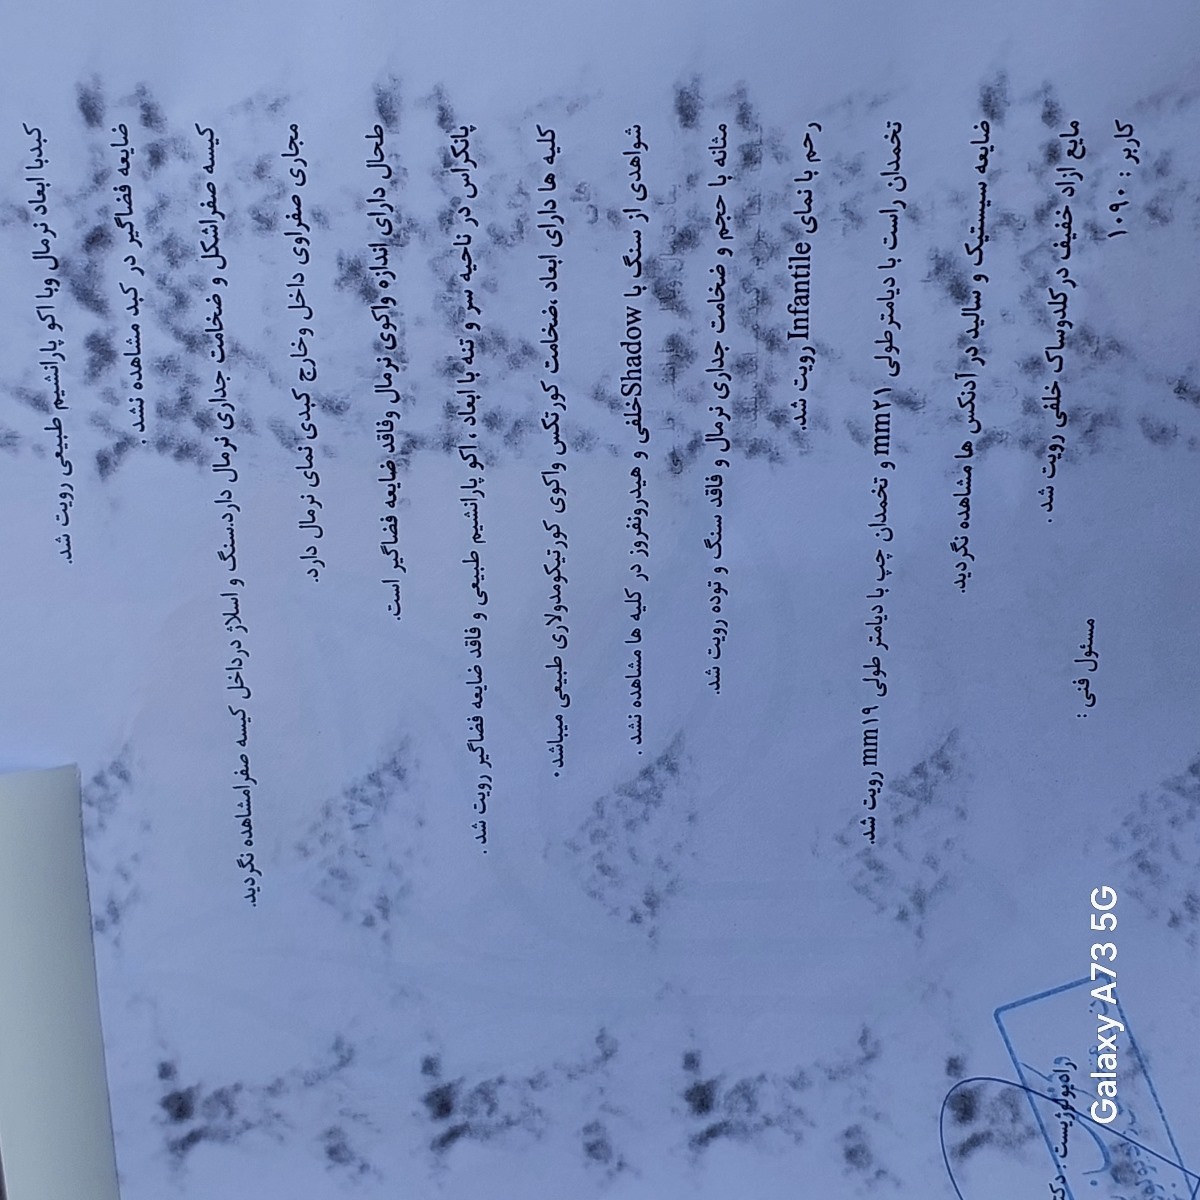 کبدبا ابعاد نرمال وبا اکو پارانشیم طبیعی رویت شد.
ضایعه فضاگیر در کبد مشاهده نشد .
کیسه صفراشکل و ضخامت جداری نرمال دارد.سنگ و اسلاژ درداخل کیسه صفرامشاهده نگردید.
مجاری صفراوی داخل وخارج کبدی نمای نرمال دارد.
طحال دارای اندازه واکوی نرمال وفاقد ضایعه فضاگیر است.
پانکراس در ناحیه سر و تنه با ابعاد ، اکو پارانشیم طبیعی و فاقد ضایعه فضاگیر رویت شد .
کلیه ها دارای ابعاد ،ضخامت کورتکس واکوی کورتیکومدولاری طبیعی میباشد.
شواهدی از سنگ با Shadowخلفی و هیدرونفروز در کلیه ها مشاهده نشد .
مثانه با حجم و ضخامت جداری نرمال و فاقد سنگ و توده رویت شد.
رحم با نمای Infantile رویت شد.
تخمدان راست با دیامترطولی mm۲۱ و تخمدان چپ با دیامتر طولی mm۱۹ رویت شد.
ضایعه سیستیک و سالید در آدنکس ها مشاهده نگردید.
مایع ازاد خفیف در کلدوساک خلفی رویت شد .
کاربر : ۱۰۹۰
مسئول فنی :
Galaxy A73 5G